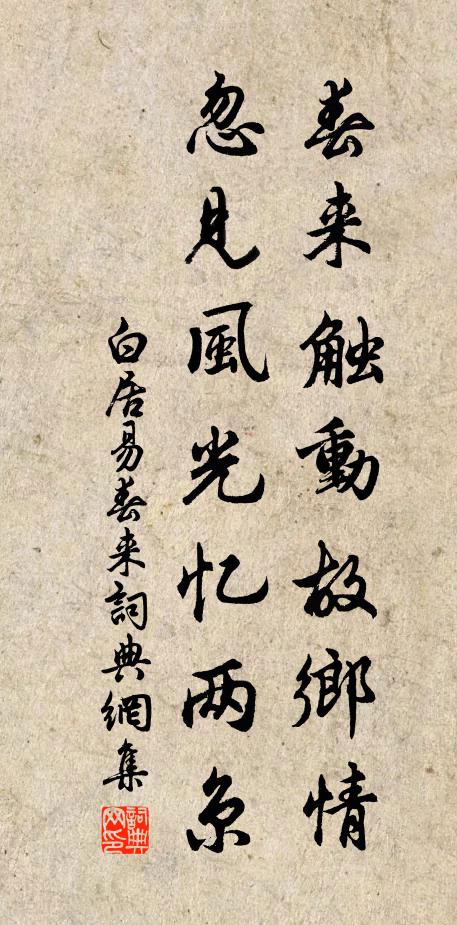 春来触動故鄉情
忽見風光忆两京
白居易春来詞典網集
詞典网印